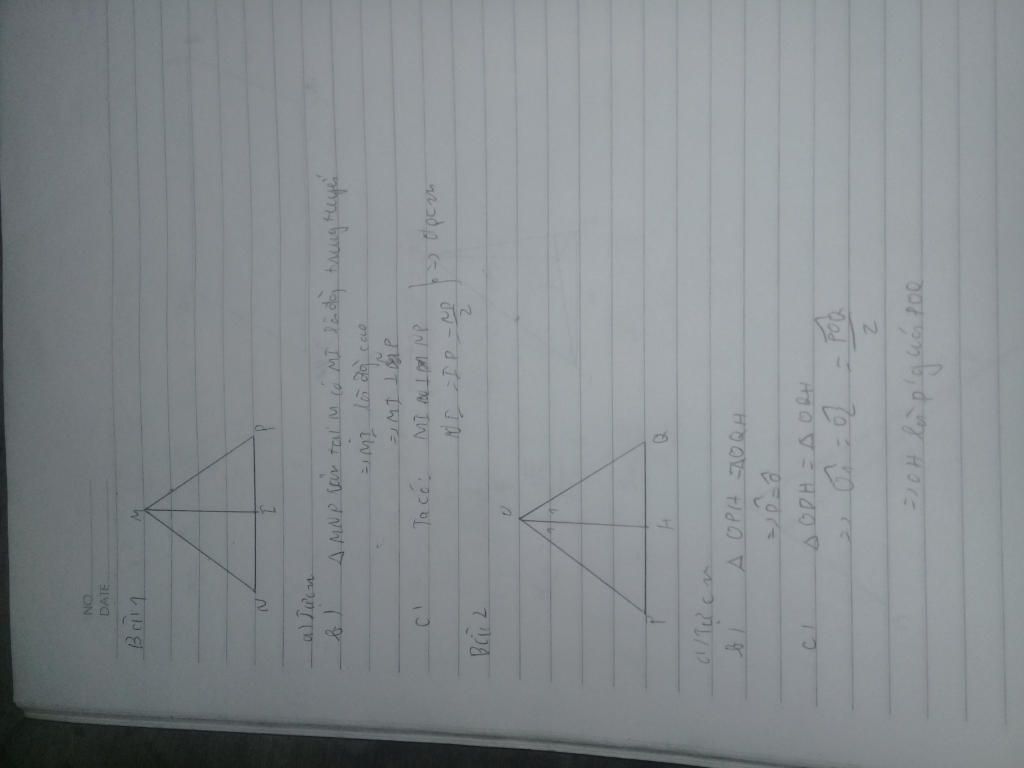 NO.
DATE
Bài 1
M
N I P
a) Tự cm
b) Δ MNP cân tại M có MI là đg trung tuyến
=> MI là đg cao
=> MI ⊥ NP
c) Ta có: MI ⊥ NP
NI = IP = NP/2 } => đpcm
Bài 2
O
1 2
P H Q
a) Tự cm
b) Δ OPH = ΔOQH
=> P̂ = Q̂
c) Δ OPH = Δ OQH
=> Ô1 = Ô2 = POQ/2
=> OH là p/g của POQ